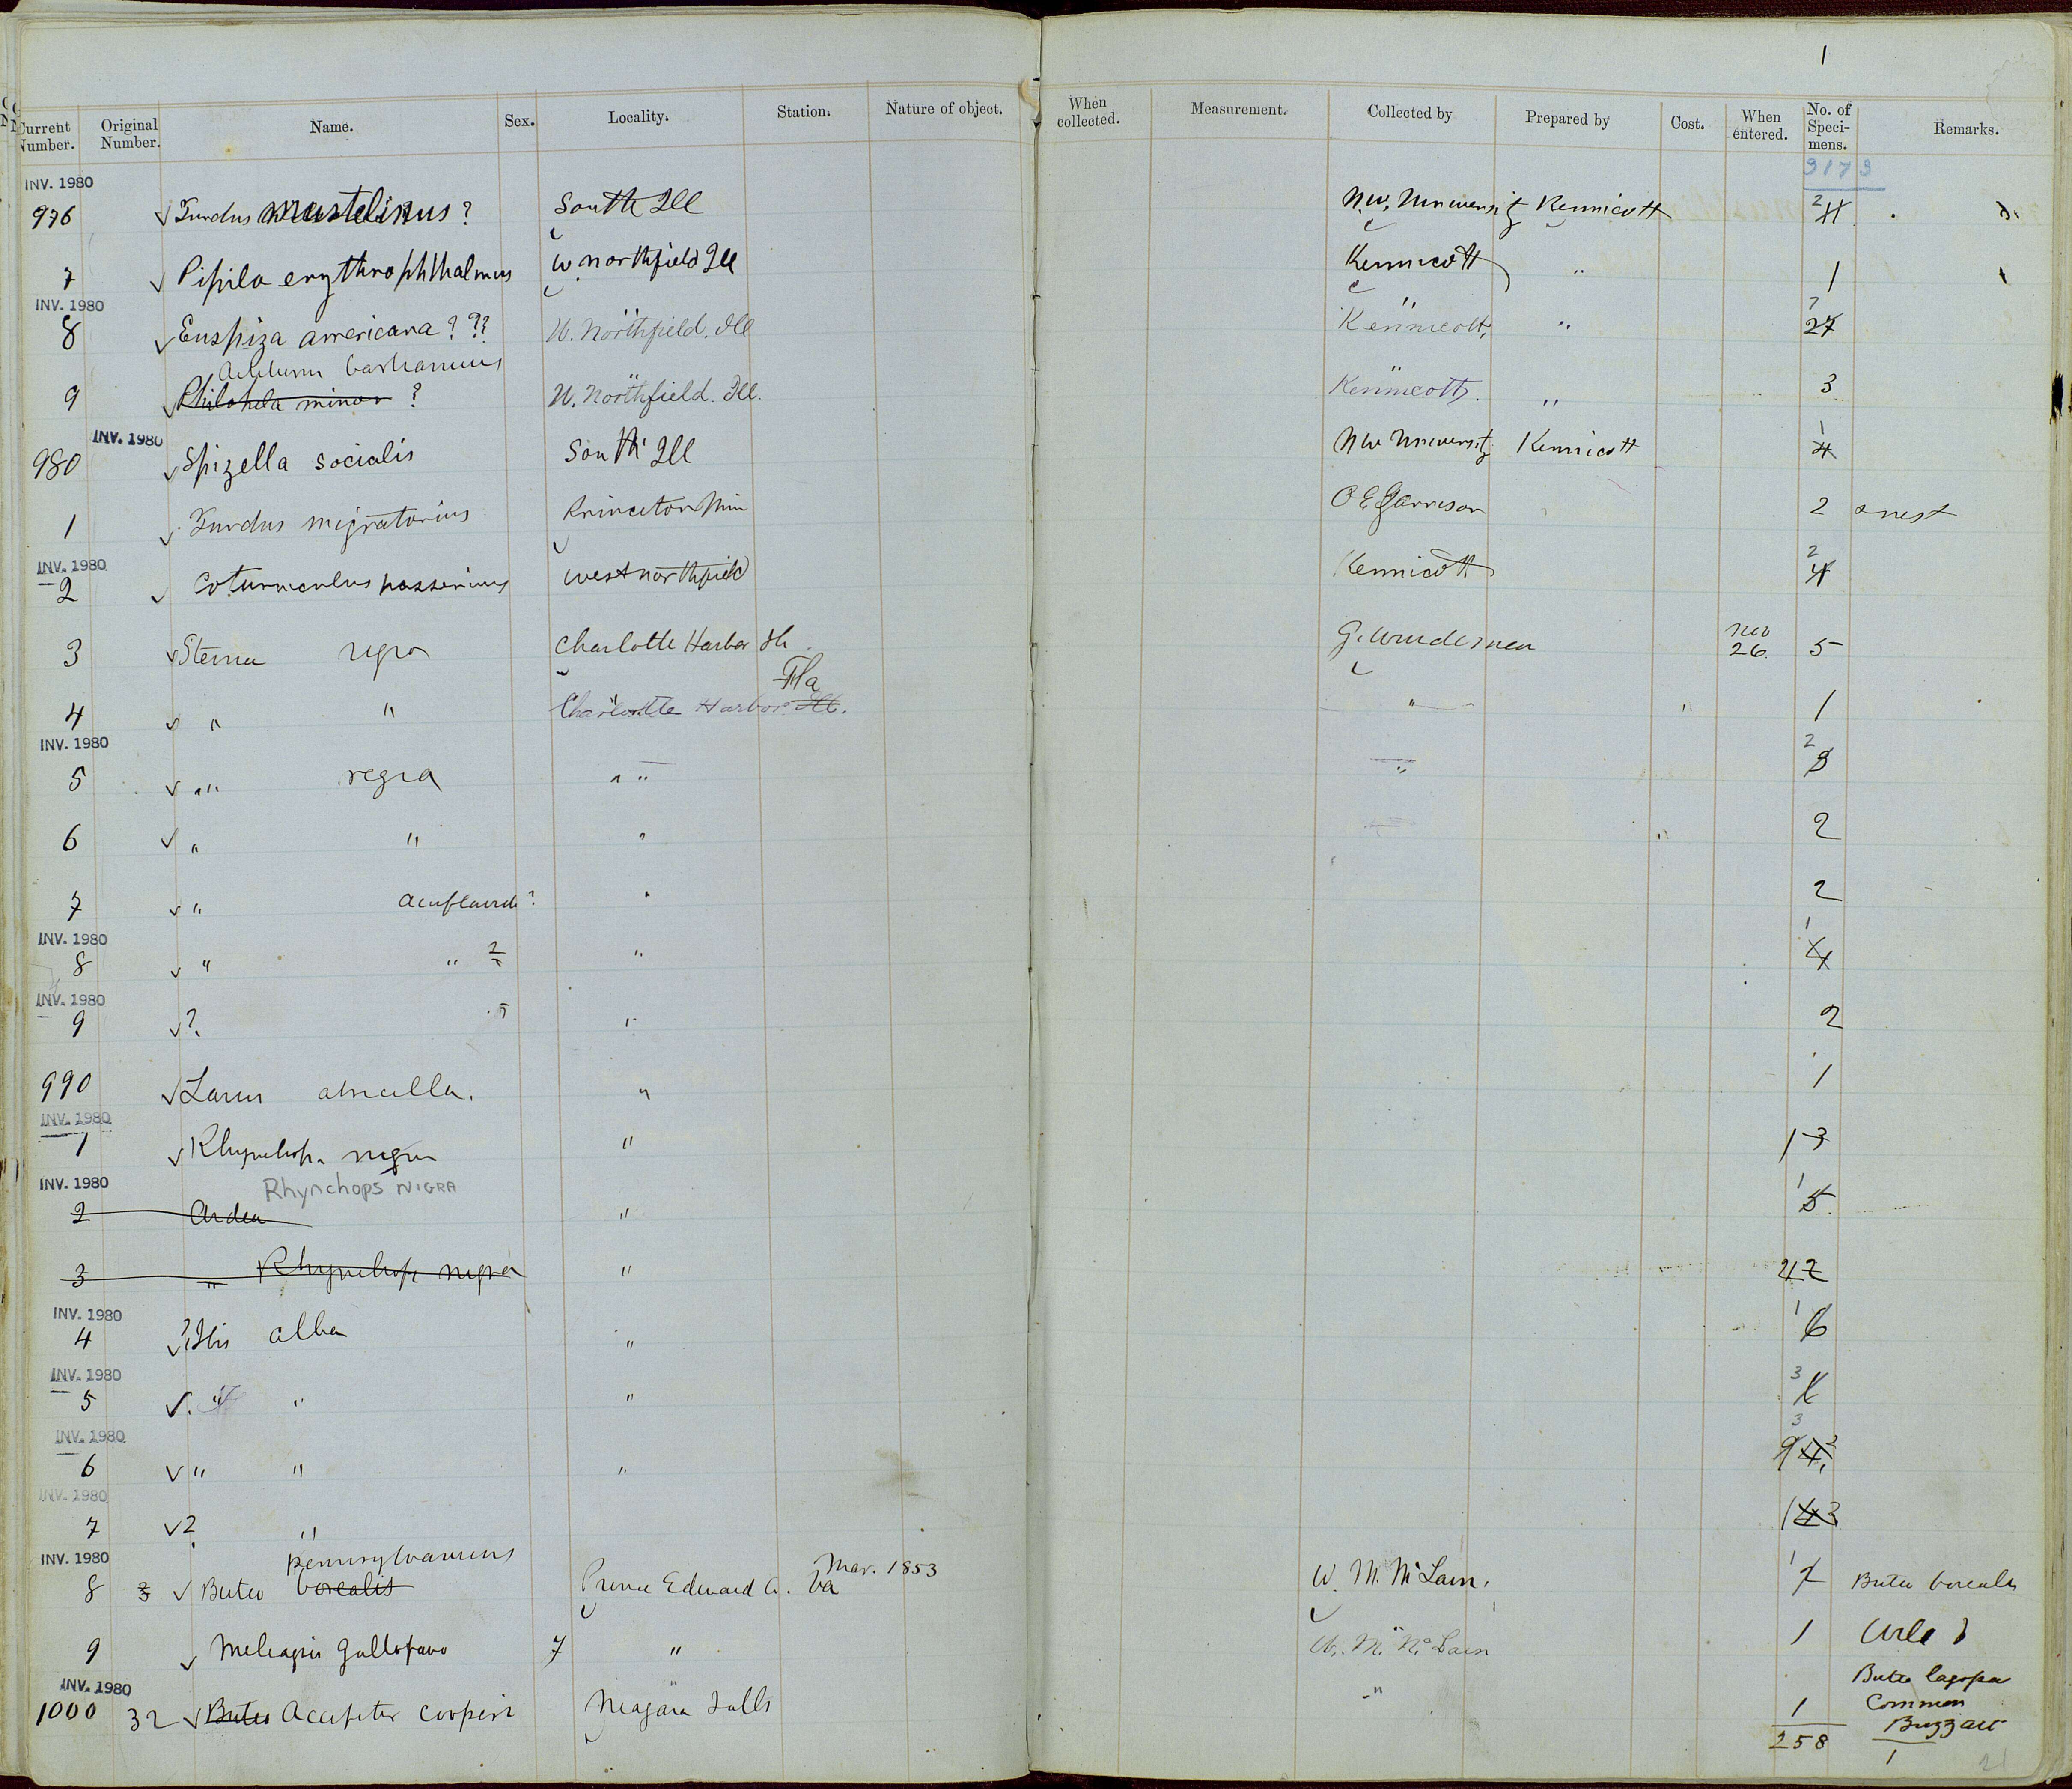 1
Current Number. Original Number. Name. Sex. Locality. Station. Nature of object. When collected. Measurement. Collected by Prepared by Cost. When entered. No. of Speci-mens. Remarks.
9173
INV. 1980
976 Turdus mustelinus ? South Ill N.W. University Kennicott 2 4
7 Pipilo erythrophthalmus W. northfield Ill Kennicott " 1
INV. 1980
8 Euspiza americana ? ?? W. Northfield. Ill Kennicott, " 7 27
Actiturus bartramius
9 Philohela minor ? W. Northfield. Ill. Kennicott. " 3
INV. 1980
980 Spizella socialis South Ill NW University Kennicott 1 4
1 Turdus migratorius Princeton Min O E Garrison 2 & nest
INV. 1980
2 Coturniculus passerinus west northfield Kennicott 2 4
3 Sterna regia Charlotte Harbor G. Wurdeman Nov 26. 5
Fla
4 " " Charlotte Harbor " " 1
INV. 1980
5 " regia " " 2 3
6 " " " 2
7 " acuflavida ? " 2
INV. 1980
8 " " ? " 1 4
INV. 1980
9 ? " 2
990 Larus atricilla. " 1
INV. 1980
1 Rhynchops nigra " 1 3
Rhynchops NIGRA
INV. 1980
2 Ardea " 1 5.
3 " Rhynchops nigra " 4 2
INV. 1980
4 ? Ibis alba " 1 6
INV. 1980
5 " " " 3
INV. 1980
6 " " " 3
INV. 1980
7 ? "
INV. 1980
pennsylvanicus Mar. 1853
8 3 Buteo borealis Prince Edward Co. Va W. M. McLain. 1 Buteo borealis
9 Meleagris Gallopavo 7 " W. M. McLain 1
INV. 1980
Buteo lagopa
1000 32 Buteo Accipiter cooperi Niagara Falls " 1 Common
Buzzard
258 1
21